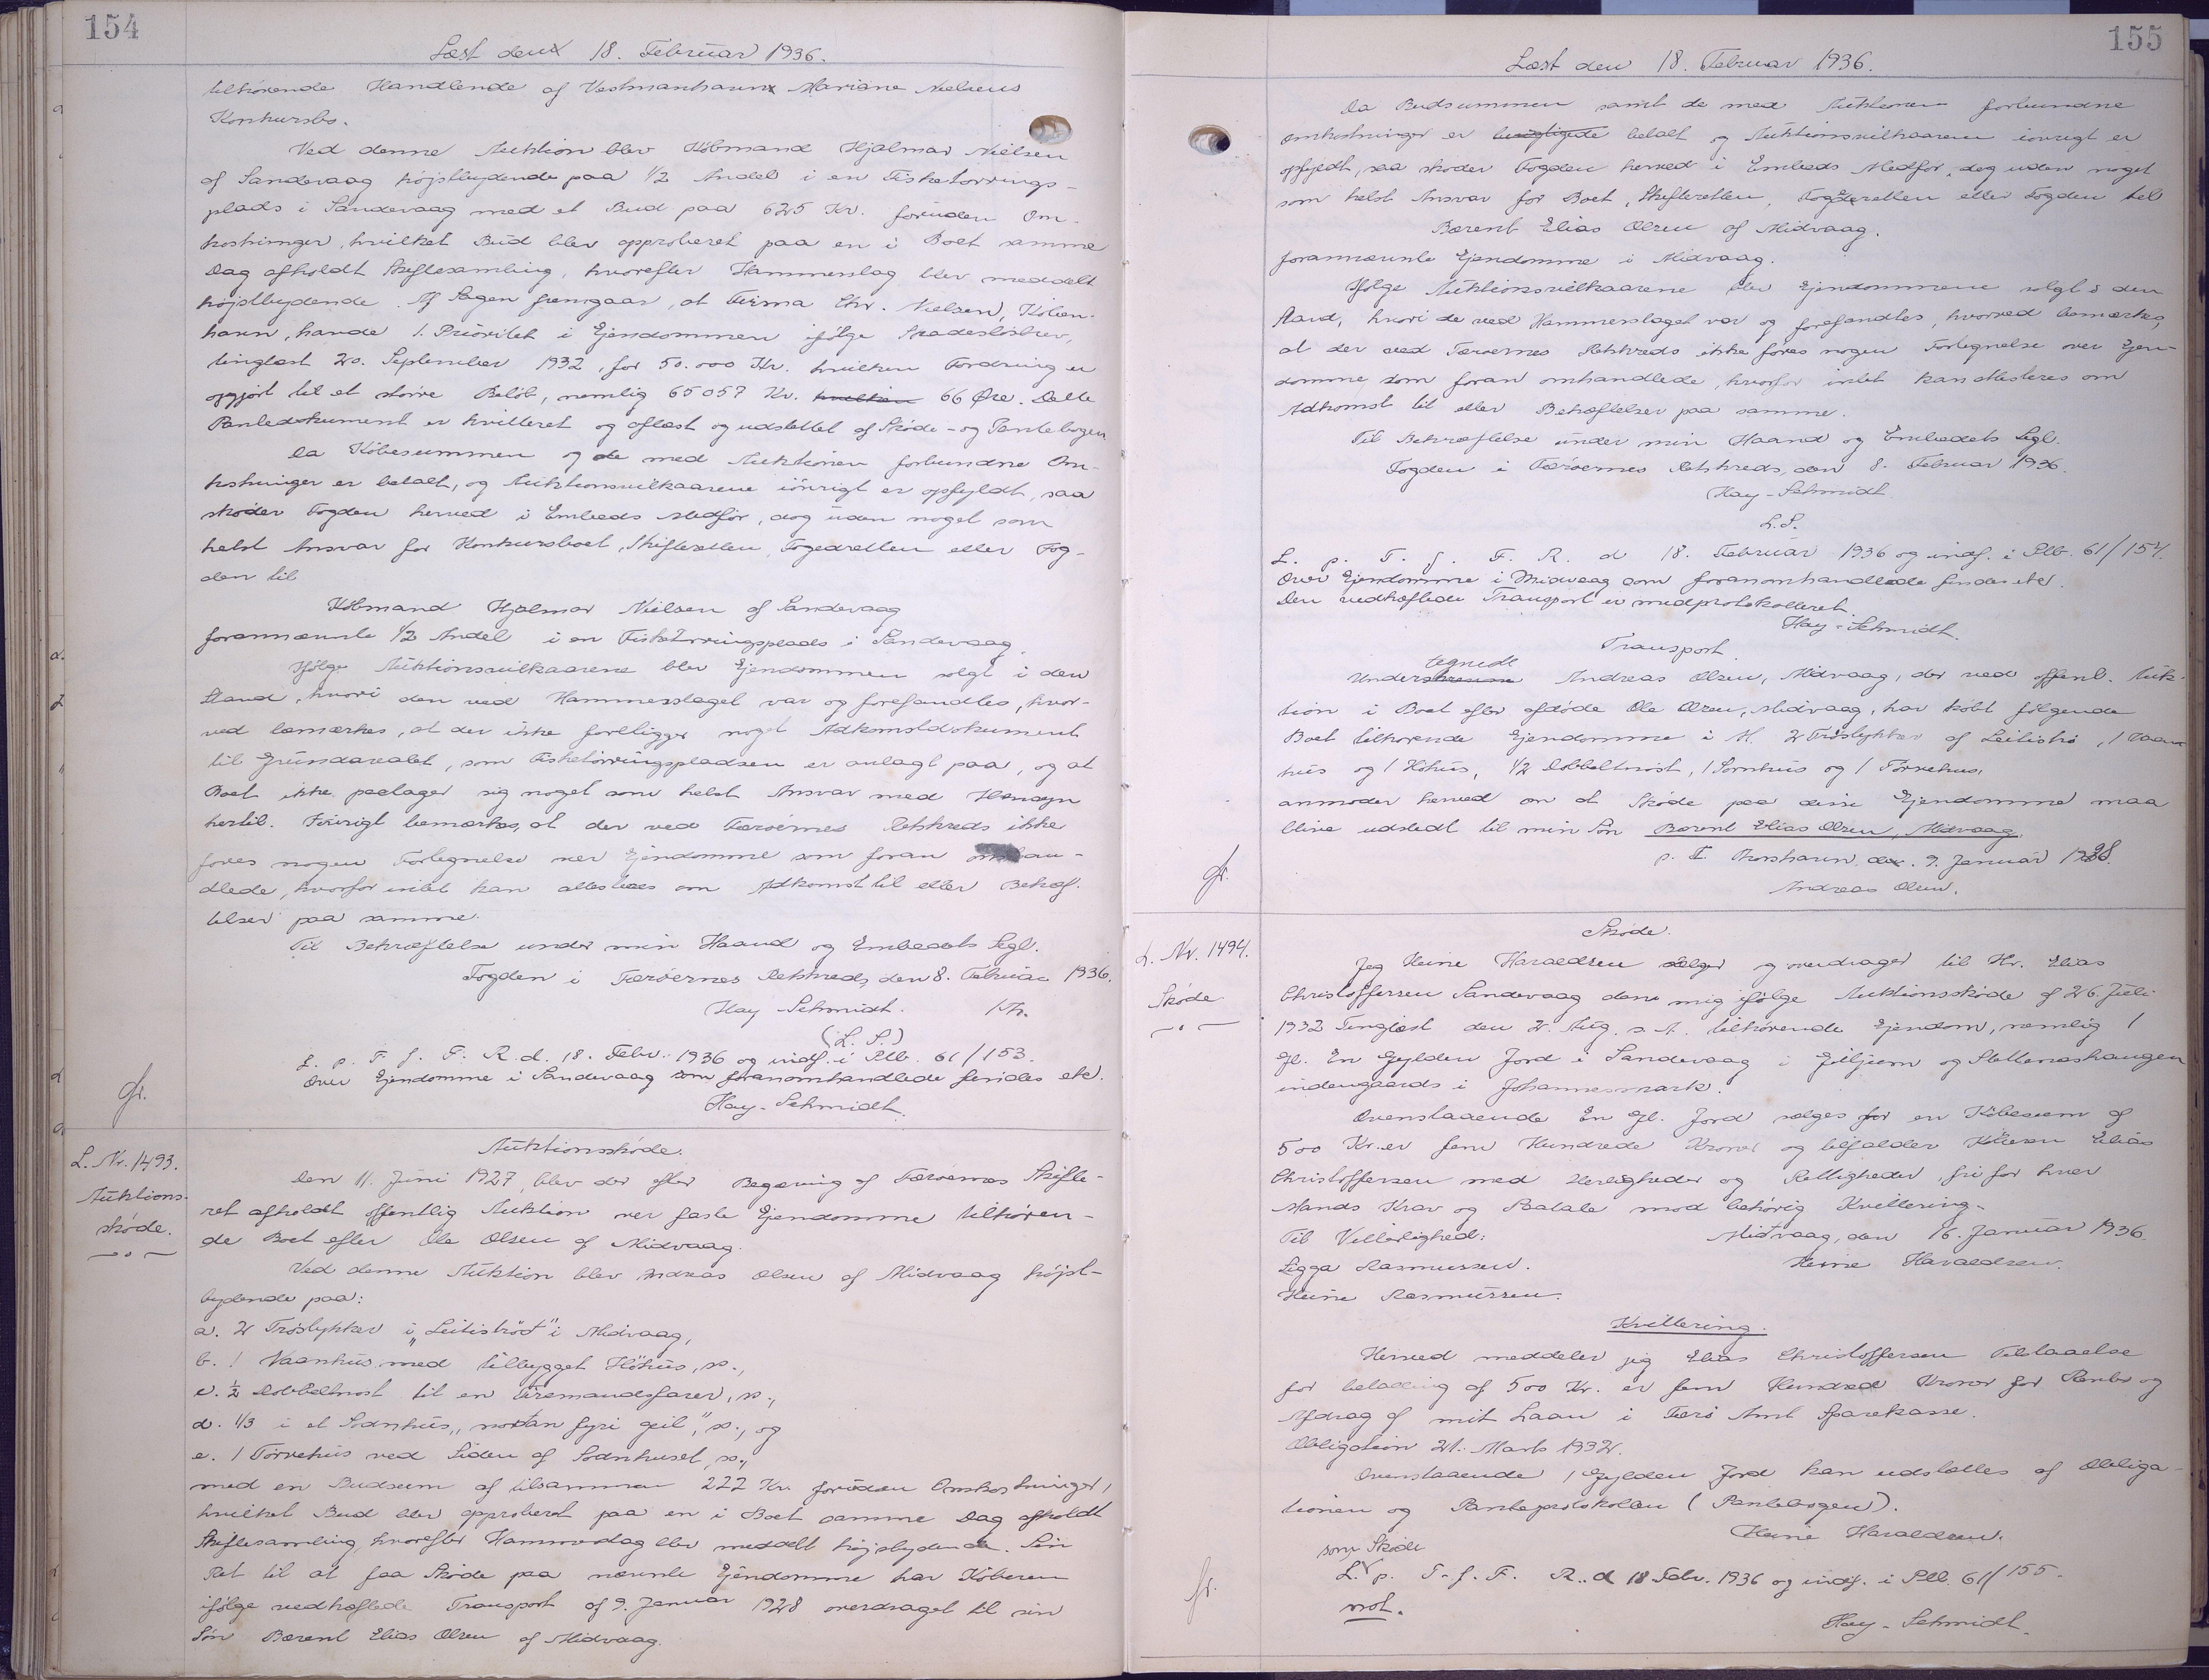 154
Læst den 18. Februar 1936.
tilhörende Handlende af Vestmanhavn Mariane Nielsens
Konkursbo.
Ved denne Auktion blev Köbmand Hjalmar Nielsen
af Sandevaag höjstbydende paa 1/2 Andel i en Fisketörrings-
plads i Sandevaag med et Bud paa 625 Kr. foruden Om-
kostninger, hvilket Bud blev approberet paa en i Boet samme
Dag afholdt Skiftesamling, hvorefter Hammerslag blev meddelt
höjstbydende. Af Sagen fremgaar, at Firma Chr. Nielsen, Köben-
havn, havde 1. Prioritet i Ejendommen ifölge Skadeslösbrev,
tinglæst 20. September 1932, for 50.000 Kr. hvilken Fordring er
opgjort til et större Belöb, nemlig 65057 Kr. hvilken 66 Øre. Dette
Pantedokument er kvitteret og aflæst og udslettet af Sköde- og Pantebogen
Da Köbesummen og de med Auktionen forbundne Om-
kostninger er betalt, og Auktionsvilkaarene iövrigt er opfyldt, saa
sköder Fogden herved i Embeds Medför, dog uden noget som
helst Ansvar for Konkursboet, Skifteretten, Fogedretten eller Fog-
den til
Köbmand Hjalmar Nielsen af Sandevaag
forannævnte 1/2 Andel i en Fisketörringsplads i Sandevaag.
Ifölge Auktionsvilkaarene blev Ejendommen solgt i den
Stand, hvori den ved Hammerslaget var og forefandtes, hvor-
ved bemærkes, at der ikke foreligger noget Adkomstdokument
til Grundarealet, som Fisketörringspladsen er anlagt paa, og at
Boet ikke paatager sig noget som helst Ansvar med Hensyn
hertil. Iövrigt bemærkes, at der ved Færöernes Retskreds ikke
föres nogen Fortegnelse over Ejendomme som foran omhan-
dlede, hvorfor intet kan attesteres om Adkomst til eller Behæf-
telser paa samme.
Til Bekræftelse under min Haand og Embedets Segl.
Fogden i Færöernes Retskreds, den 8. Februar 1936.
Hay-Schmidt.
(L. S.)
L. p. T. f. F. R. d. 18. Febr. 1936 og indf. i Ptb. 61/153.
Over Ejendomme i Sandevaag som foranomhandlede findes etc.
Hay-Schmidt.
gr.
L. Nr. 1493.
Auktions-
sköde.
Auktionssköde.
Den 11. Juni 1927, blev der efter Begæring af Færöernes Skifte-
ret afholdt offentlig Auktion over faste Ejendomme tilhören-
de Boet efter Ole Olsen af Midvaag.
Ved denne Auktion blev Andreas Olsen af Midvaag höjst-
bydende paa:
a. 2 Tröstykker i "Leitiströð" i Midvaag,
b. 1 Vaanhus med tilbygget Höhus, sst.,
c. 1/2 Dobbeltnöst til en Firemandsfarer, sst.,
d. 1/3 i et Sodnhus, "nortan fyri geil", sst., og
e. 1 Törvehus ved Siden af Sodnhuset, sst.,
med en Budsum af tilsammen 222 Kr. foruden Omkostninger,
hvilket Bud blev approberet paa en i Boet samme Dag afholdt
Skiftesamling, hvorefter Hammerslag blev meddelt höjstbydende. Sin
Ret til at faa Sköde paa nævnte Ejendomme har Köberen
ifölge vedhæftede Transport af 9. Januar 1928 overdraget til sin
Sön Berent Elias Olsen af Midvaag.
155
Læst den 18. Februar 1936.
Da Budsummen samt de med Auktionen forbundne
Omkostninger er betalt og Auktionsvilkaarene iövrigt er
opfyldt, saa sköder Fogden herved i Embeds Medför, dog uden noget
som helst Ansvar for Boet, Skifteretten, Fogedretten eller Fogden til
Berent Elias Olsen af Midvaag.
forannævnte Ejendomme i Midvaag.
Ifölge Auktionsvilkaarene blev Ejendommene solgt i den
Stand, hvori de ved Hammerslaget var og forefandtes, hvorved bemærkes,
at der ved Færöernes Retskreds ikke föres nogen Fortegnelse over Ejen-
domme, som foran omhandlede, hvorfor intet kan attesteres om
Adkomst til eller Behæftelser paa samme.
Til Bekræftelse under min Haand og Embedets Segl.
Fogden i Færöernes Retskreds, den 8. Februar 1936.
Hay-Schmidt.
L.S.
L. p. T. f. F. R. d. 18. Februar 1936 og indf. i Ptb. 61/154.
Over Ejendomme i Midvaag som foranomhandlede findes etc.
Den vedhæftede Transport er medprotokolleret.
Hay-Schmidt.
Transport.
Undertegnede Andreas Olsen, Midvaag, der ved offentl. Auk-
tion i Boet efter afdöde Ole Olsen, Midvaag, har köbt fölgende
Boet tilhörende Ejendomme i M. 2 Tröstykker af Leitiströ, 1 Vaan-
hus og 1 Höhus, 1/2 Dobbeltnöst, 1 Sornhus og 1 Törvehus,
anmoder herved om at Sköde paa disse Ejendomme maa
blive udstedt til min Sön Berent Elias Olsen, Midvaag.
p. T. Thorshavn, den 9. Januar 1928.
Andreas Olsen.
gr.
L. Nr. 1494.
Sköde
Sköde.
Jeg Heine Haraldsen sælger og overdrager til Hr. Elias
Christoffersen Sandevaag den mig ifölge Auktionssköde af 26. Juli
1932 Tinglæst den 2. Aug. s. A. tilhörende Ejendom, nemlig 1
Gl. En Gylden Jord i Sandevaag i Giljum og
indengaards i Johannesmark.
Ovenstaaende En Gl. Jord sælges for en Köbesum af
500 Kr. er fem Hundrede Kroner og tilfalder Köberen Elias
Christoffersen med Herligheder og Rettigheder, fri for hver
Mands Krav og Patale mod behörig Kvittering.
Til Vitterlighed: Midvaag, den 16. Januar 1936.
Sigga Rasmussen. Heine Haraldsen.
Heine Rasmussen.
Kvittering.
Herved meddeler jeg Elias Christoffersen Tilstaaelse
for betaling af 500 Kr. er fem Hundred Kroner for Renter og
Afdrag af mit Laan i Færö Amt Sparekasse.
Obligation 21. Marts 1932.
Ovenstaaende 1 Gylden Jord kan udslettes af Obliga-
tionen og Panteprotokollen (Pantebogen).
Heine Haraldsen.
som Sköde
L. p. T. f. F. R. d 18 Febr. 1936 og indf. i Ptb. 61/155.
not.
Hay-Schmidt.
gr.